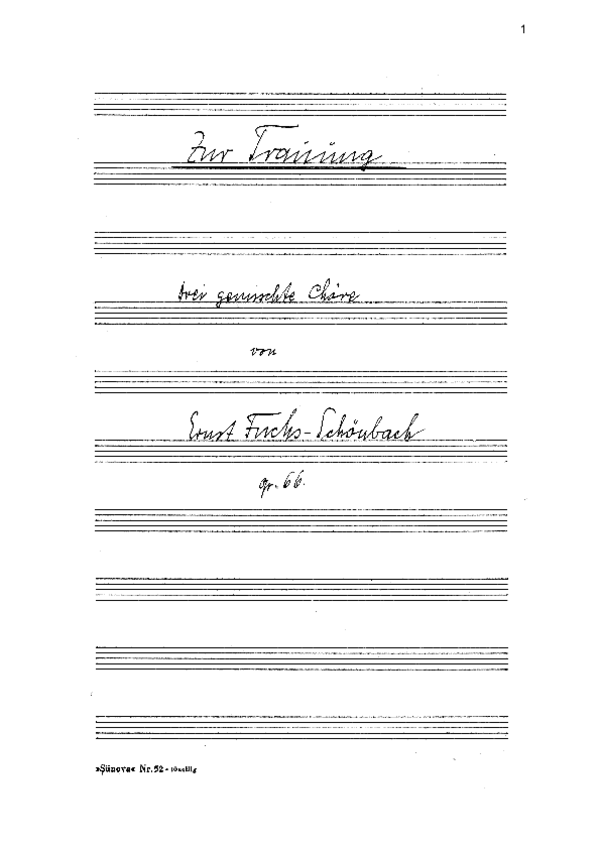 1
Zur Trauung
drei gemischte Chöre
von
Ernst Fuchs-Schönbach
op. 66.
»Sünova« Nr. 52 - 10zeilig